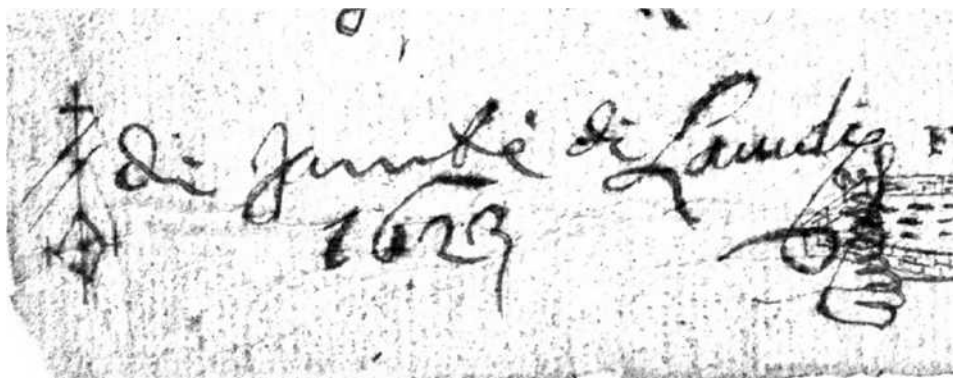 di Jumté di Laudis
1623